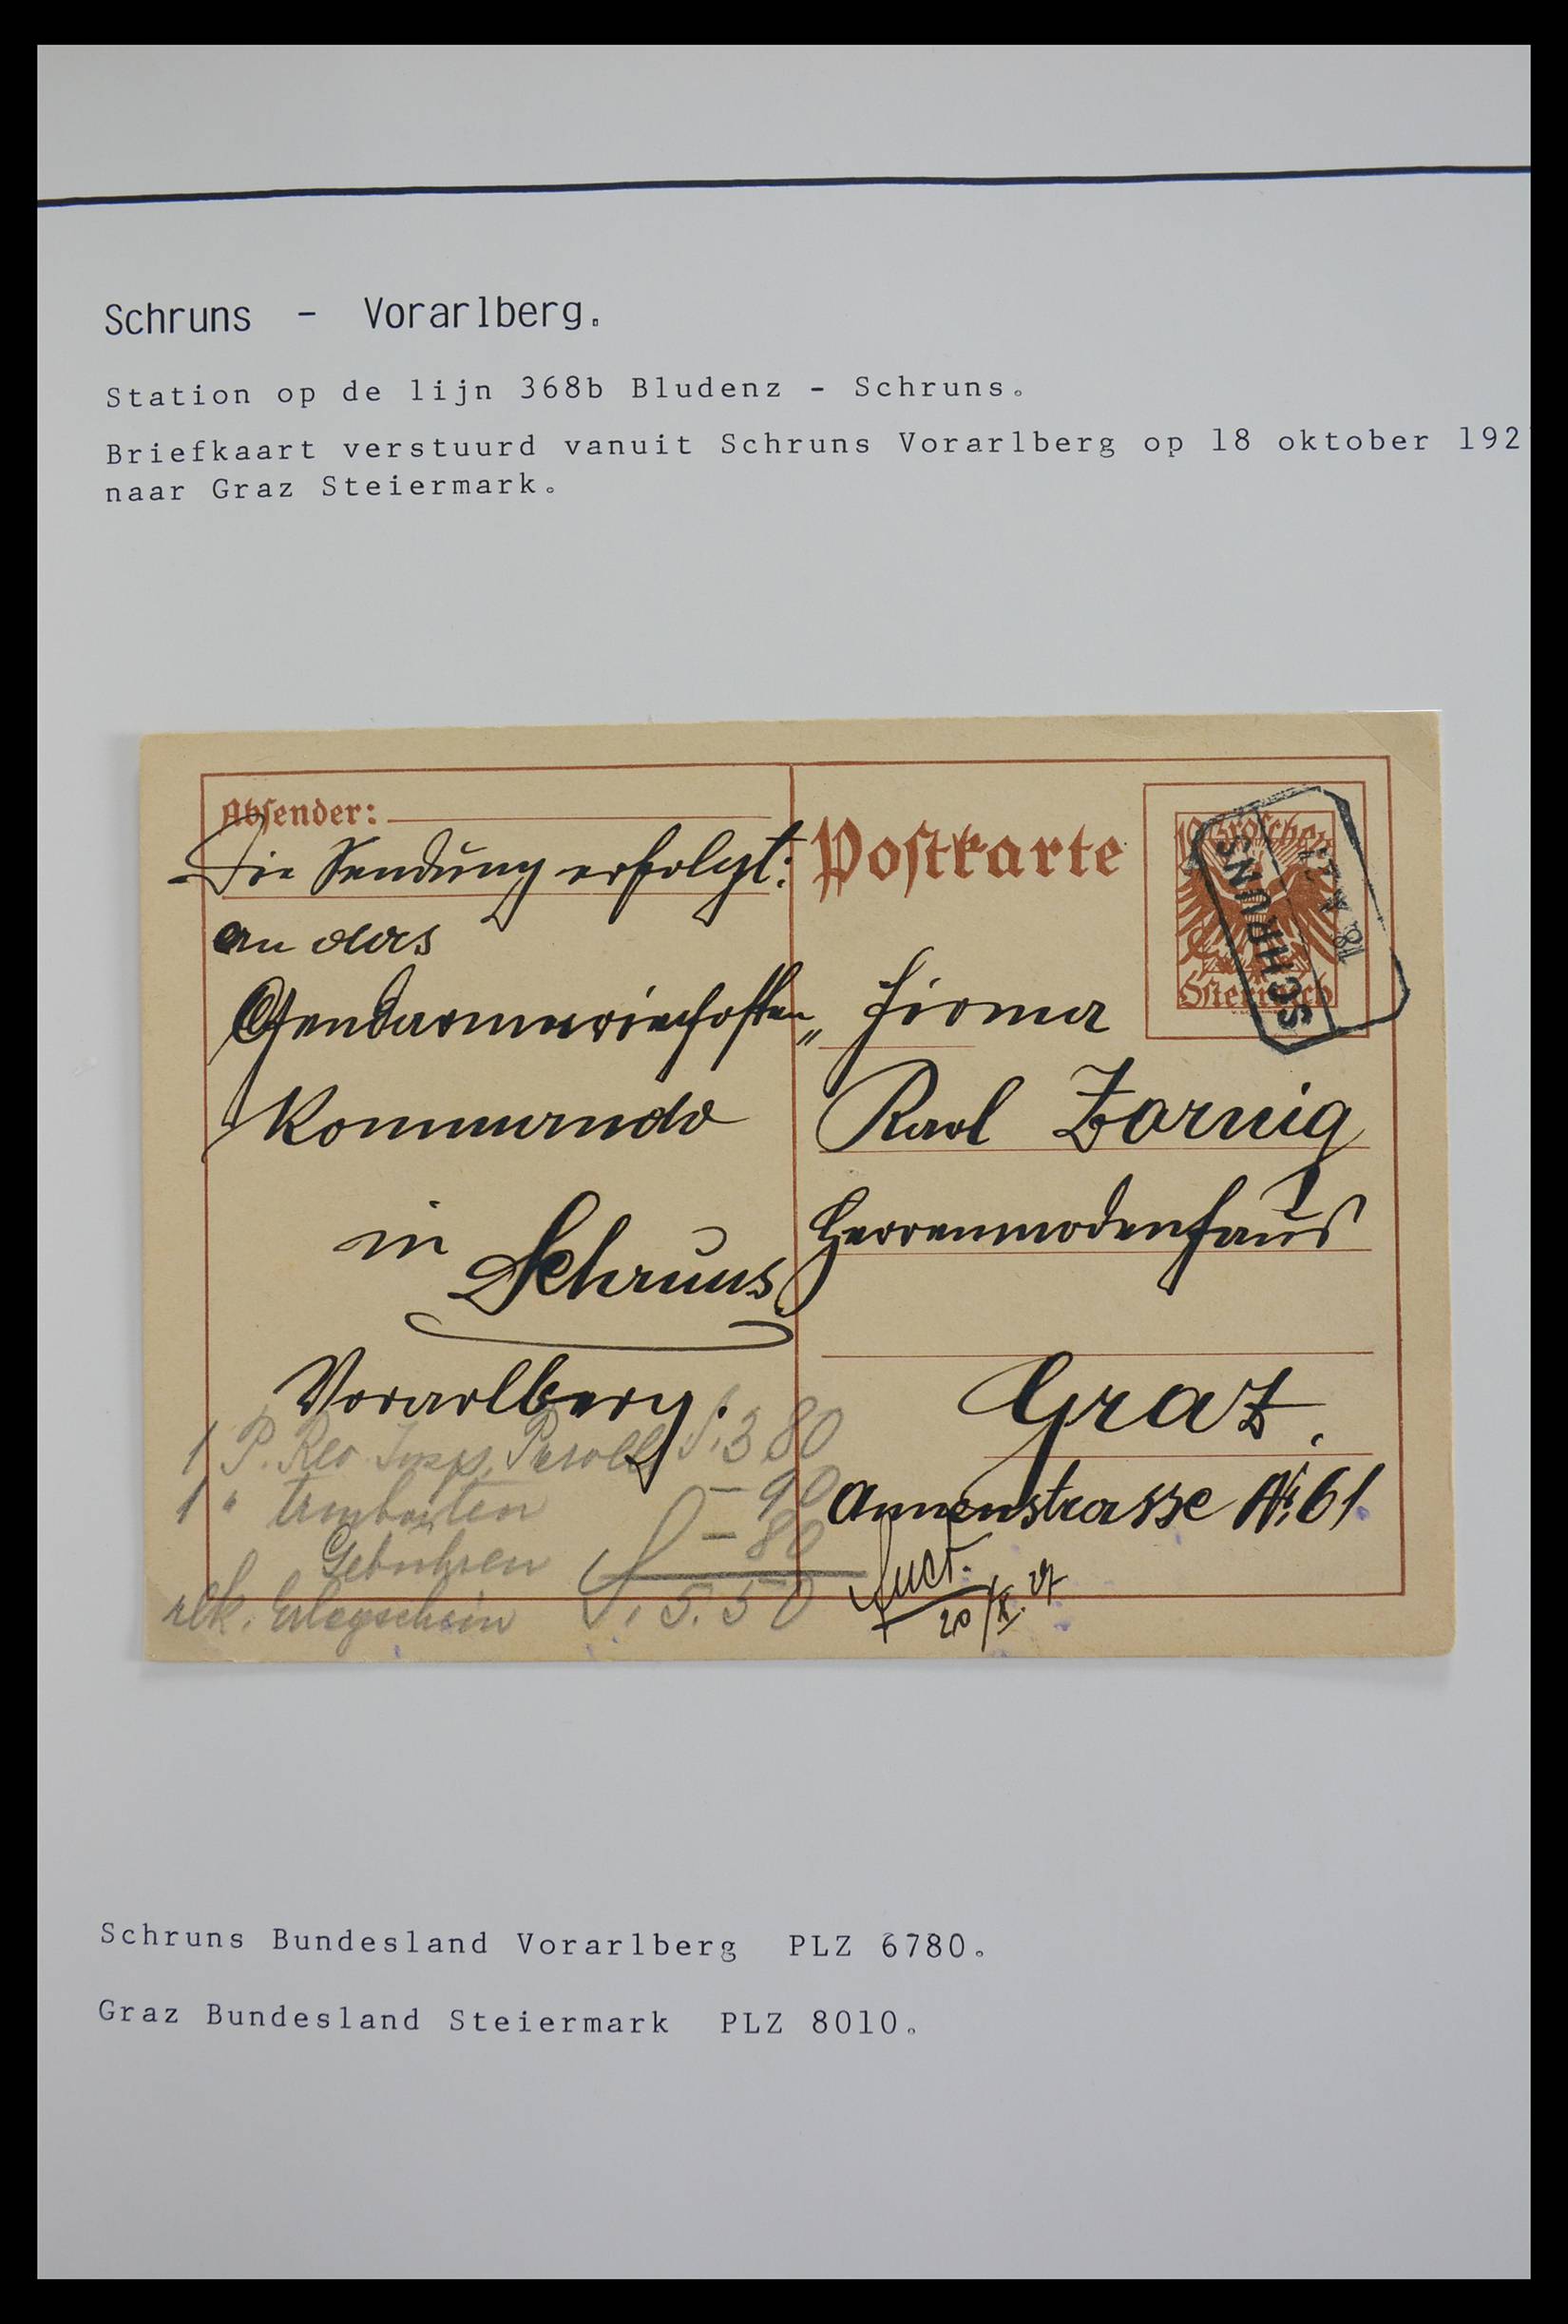 Schruns - Vorarlberg.
Station op de lijn 368b Bludenz - Schruns.
Briefkaart verstuurd vanuit Schruns Vorarlberg op 18 oktober 192
naar Graz Steiermark.
Absender:
Die Sendung erfolgt:
an das
Gendarmerieposten„
Kommando
in Schruns
Vorarlberg.
Postkarte
10 Groschen
Österreich
SCHRUNS
18.
Firma
Karl Zornig
Herrenmodenhaus
Graz.
Annenstrasse № 61
1 P. Rev. Insp. S. 3 80
1 " - 90
Gebühren - 80
rek. Erlagschein S. 5.50
20/X. 27
Schruns Bundesland Vorarlberg PLZ 6780.
Graz Bundesland Steiermark PLZ 8010.